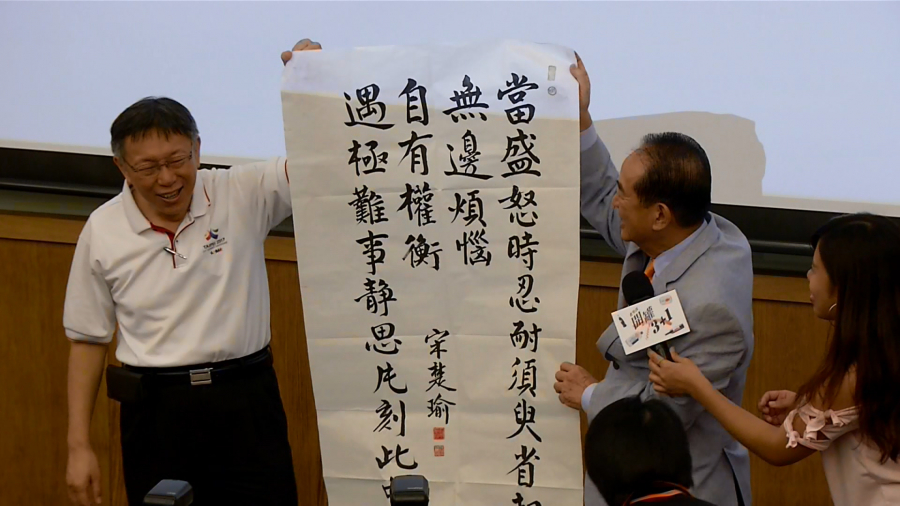 當盛怒時忍耐須臾省
無邊煩惱
遇極難事靜思片刻此
自有權衡
宋楚瑜
3+1